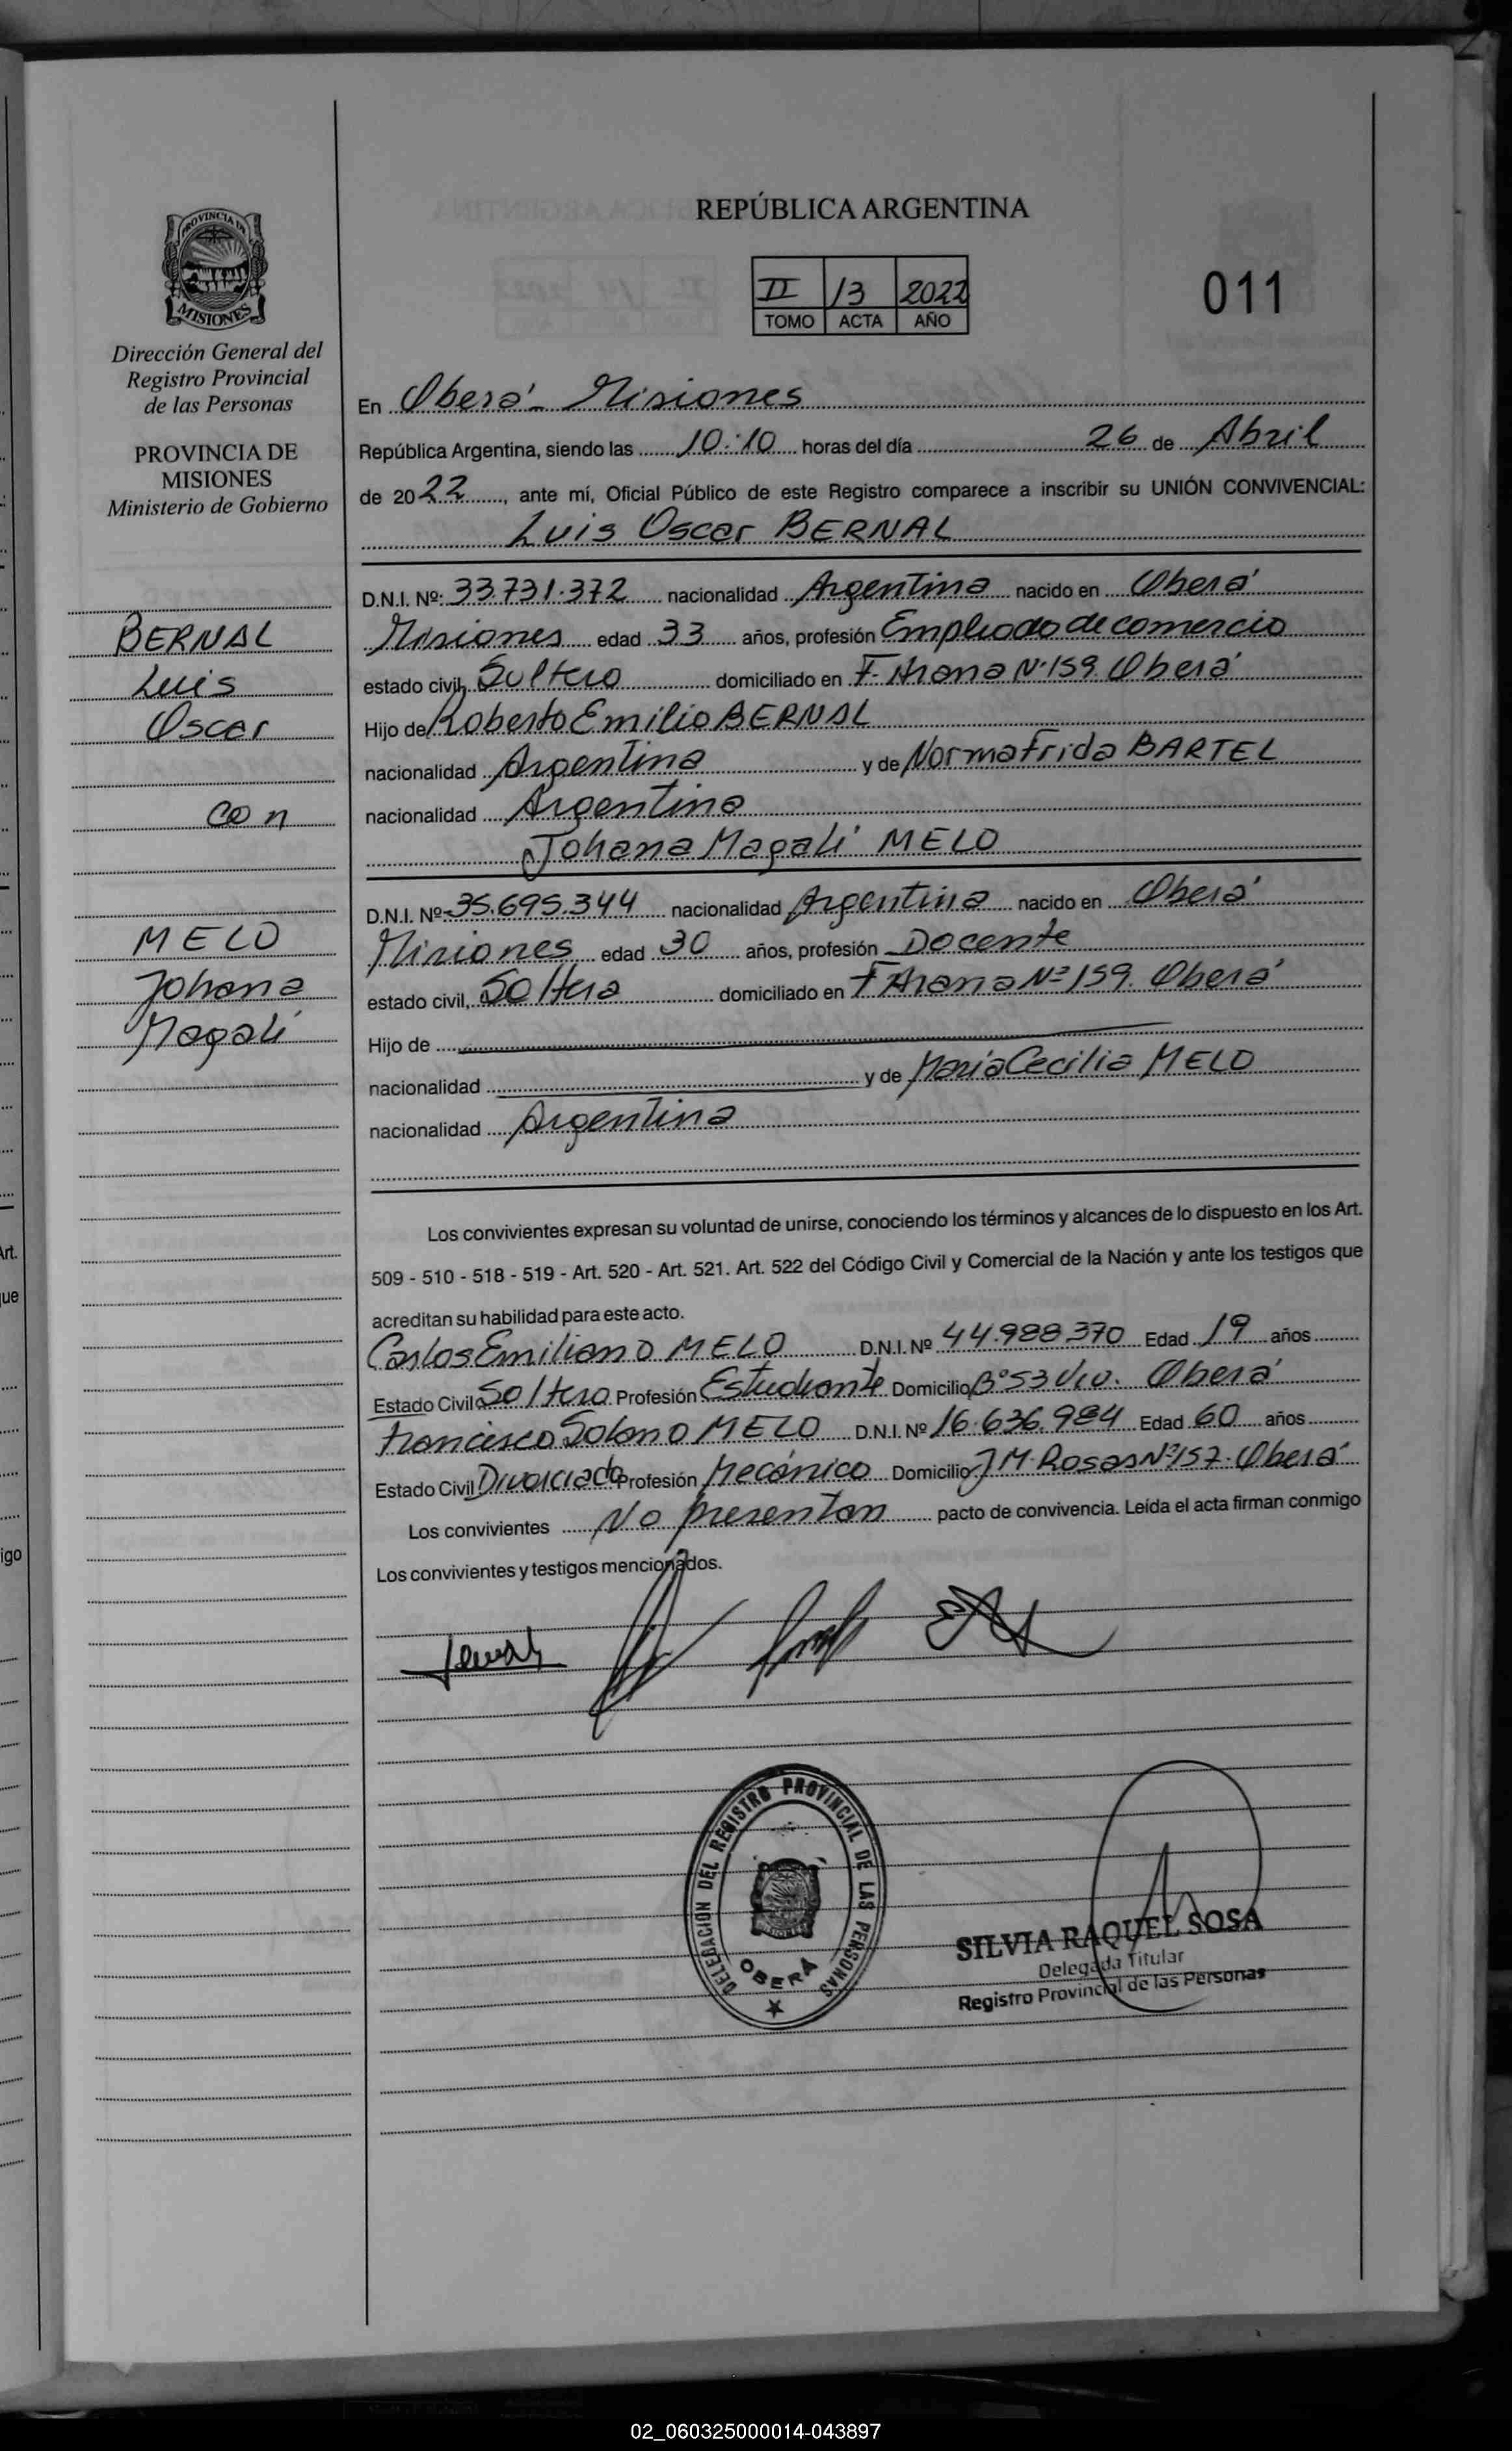 REPÚBLICA ARGENTINA
II 13 2022
TOMO ACTA AÑO
011
PROVINCIA DE
MISIONES
Dirección General del
Registro Provincial
de las Personas
PROVINCIA DE
MISIONES
Ministerio de Gobierno
BERNAL
Luis
Oscar
con
MELO
Johana
Magalí
En Oberá - Misiones
República Argentina, siendo las 10:10 horas del día 26 de Abril
de 2022, ante mí, Oficial Público de este Registro comparece a inscribir su UNIÓN CONVIVENCIAL:
Luis Oscar BERNAL
D.N.I. Nº: 33.731.372 nacionalidad Argentina nacido en Oberá
Misiones edad 33 años, profesión Empleado de comercio
estado civil, Soltero domiciliado en F. Arana Nº 159. Oberá
Hijo de Roberto Emilio BERNAL
nacionalidad Argentina y de Norma Frida BARTEL
nacionalidad Argentina
Johana Magalí MELO
D.N.I. Nº 35.695.344 nacionalidad Argentina nacido en Oberá
Misiones edad 30 años, profesión Docente
estado civil, Soltera domiciliado en F Arana Nº 159. Oberá
Hijo de
nacionalidad y de María Cecilia MELO
nacionalidad Argentina
Los convivientes expresan su voluntad de unirse, conociendo los términos y alcances de lo dispuesto en los Art.
509 - 510 - 518 - 519 - Art. 520 - Art. 521. Art. 522 del Código Civil y Comercial de la Nación y ante los testigos que
acreditan su habilidad para este acto.
Carlos Emiliano MELO D.N.I. Nº 44.988.370 Edad 19 años
Estado Civil Soltero Profesión Estudiante Domicilio Bº 53 Viv. Oberá
Francisco Solano MELO D.N.I. Nº 16.636.984 Edad 60 años
Estado Civil Divorciado Profesión Mecánico Domicilio J M. Rosas Nº 157. Oberá
Los convivientes No presentan pacto de convivencia. Leída el acta firman conmigo
Los convivientes y testigos mencionados.
DELEGACIÓN DEL REGISTRO PROVINCIAL DE LAS PERSONAS
OBERÁ
SILVIA RAQUEL SOSA
Delegada Titular
Registro Provincial de las Personas
Art.
que
igo
02_060325000014-043897